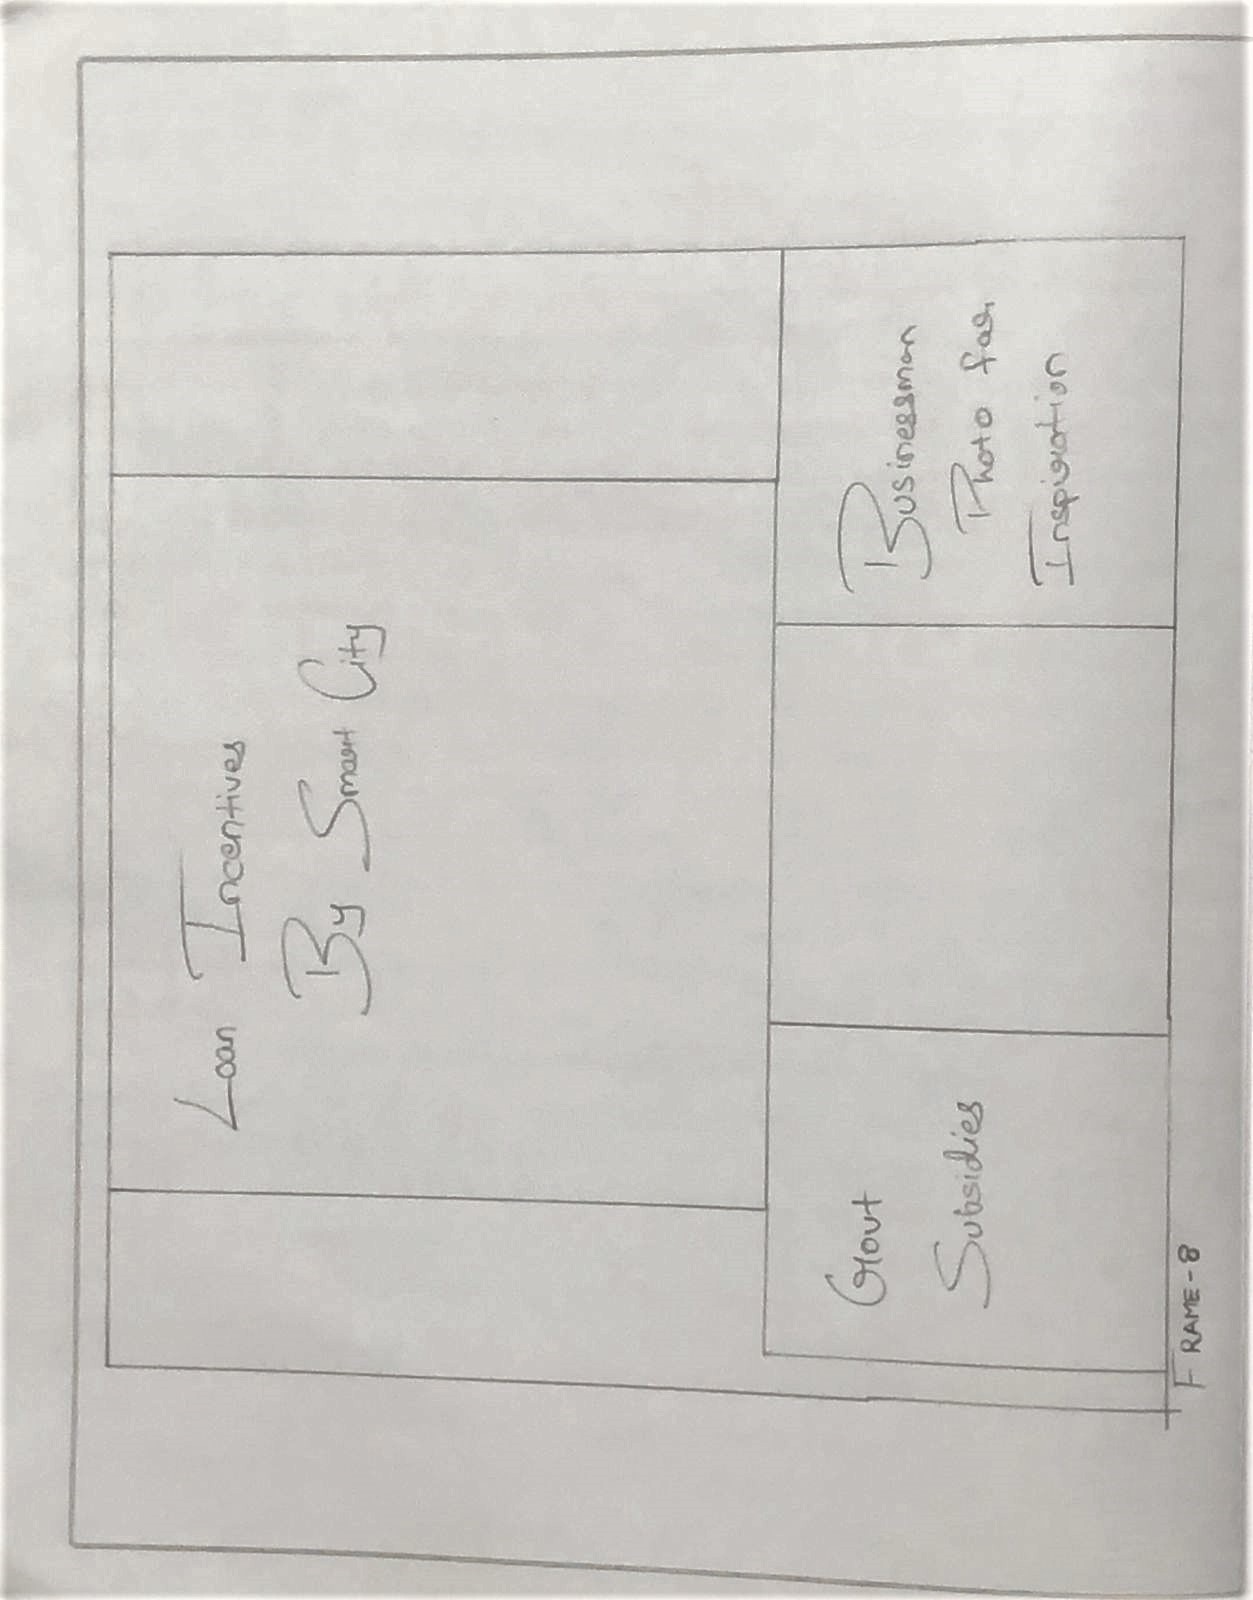 Loan Incentives
By Smart City
Govt
Subsidies
Businessman
Photo for
Inspiration
FRAME-8